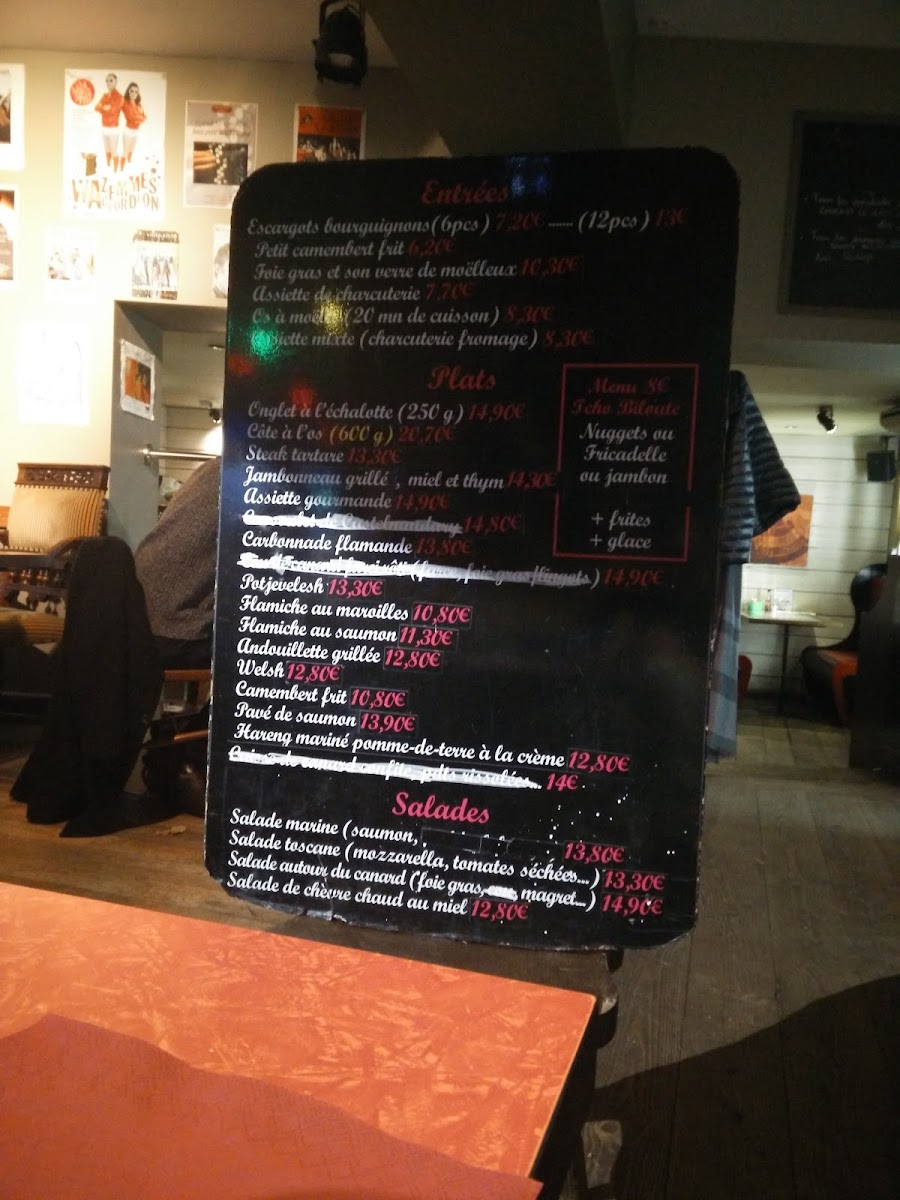 WAZEMMES
ACCORDÉON
Entrées
Escargots bourguignons (6pcs) 7,20€ ...... (12pcs) 13€
Petit camembert frit 6,20€
Foie gras et son verre de moëlleux 10,30€
Assiette de charcuterie 7,70€
Os à moëlle (20 mn de cuisson) 8,30€
Assiette mixte (charcuterie fromage) 8,30€
Plats
Onglet à l'échalotte (250 g) 14,90€
Côte à l'os (600 g) 20,70€
Steak tartare 13,30€
Jambonneau grillé , miel et thym 14,30€
Assiette gourmande 14,90€
Cassoulet de Castelnaudary 14,80€
Carbonnade flamande 13,80€
flingots) 14,90€
Potjevelesh 13,30€
Flamiche au maroilles 10,80€
Flamiche au saumon 11,30€
Andouillette grillée 12,80€
Welsh 12,80€
Camembert frit 10,80€
Pavé de saumon 13,90€
Hareng mariné pomme-de-terre à la crème 12,80€
Cuisse de canard confite, pdts rissolées.. 14€
Menu 8€
Tcho Biloute
Nuggets ou
Fricadelle
ou jambon
+ frites
+ glace
Salades
Salade marine (saumon, 13,80€
Salade toscane (mozzarella, tomates séchées...) 13,30€
Salade autour du canard (foie gras, magret...) 14,90€
Salade de chèvre chaud au miel 12,80€